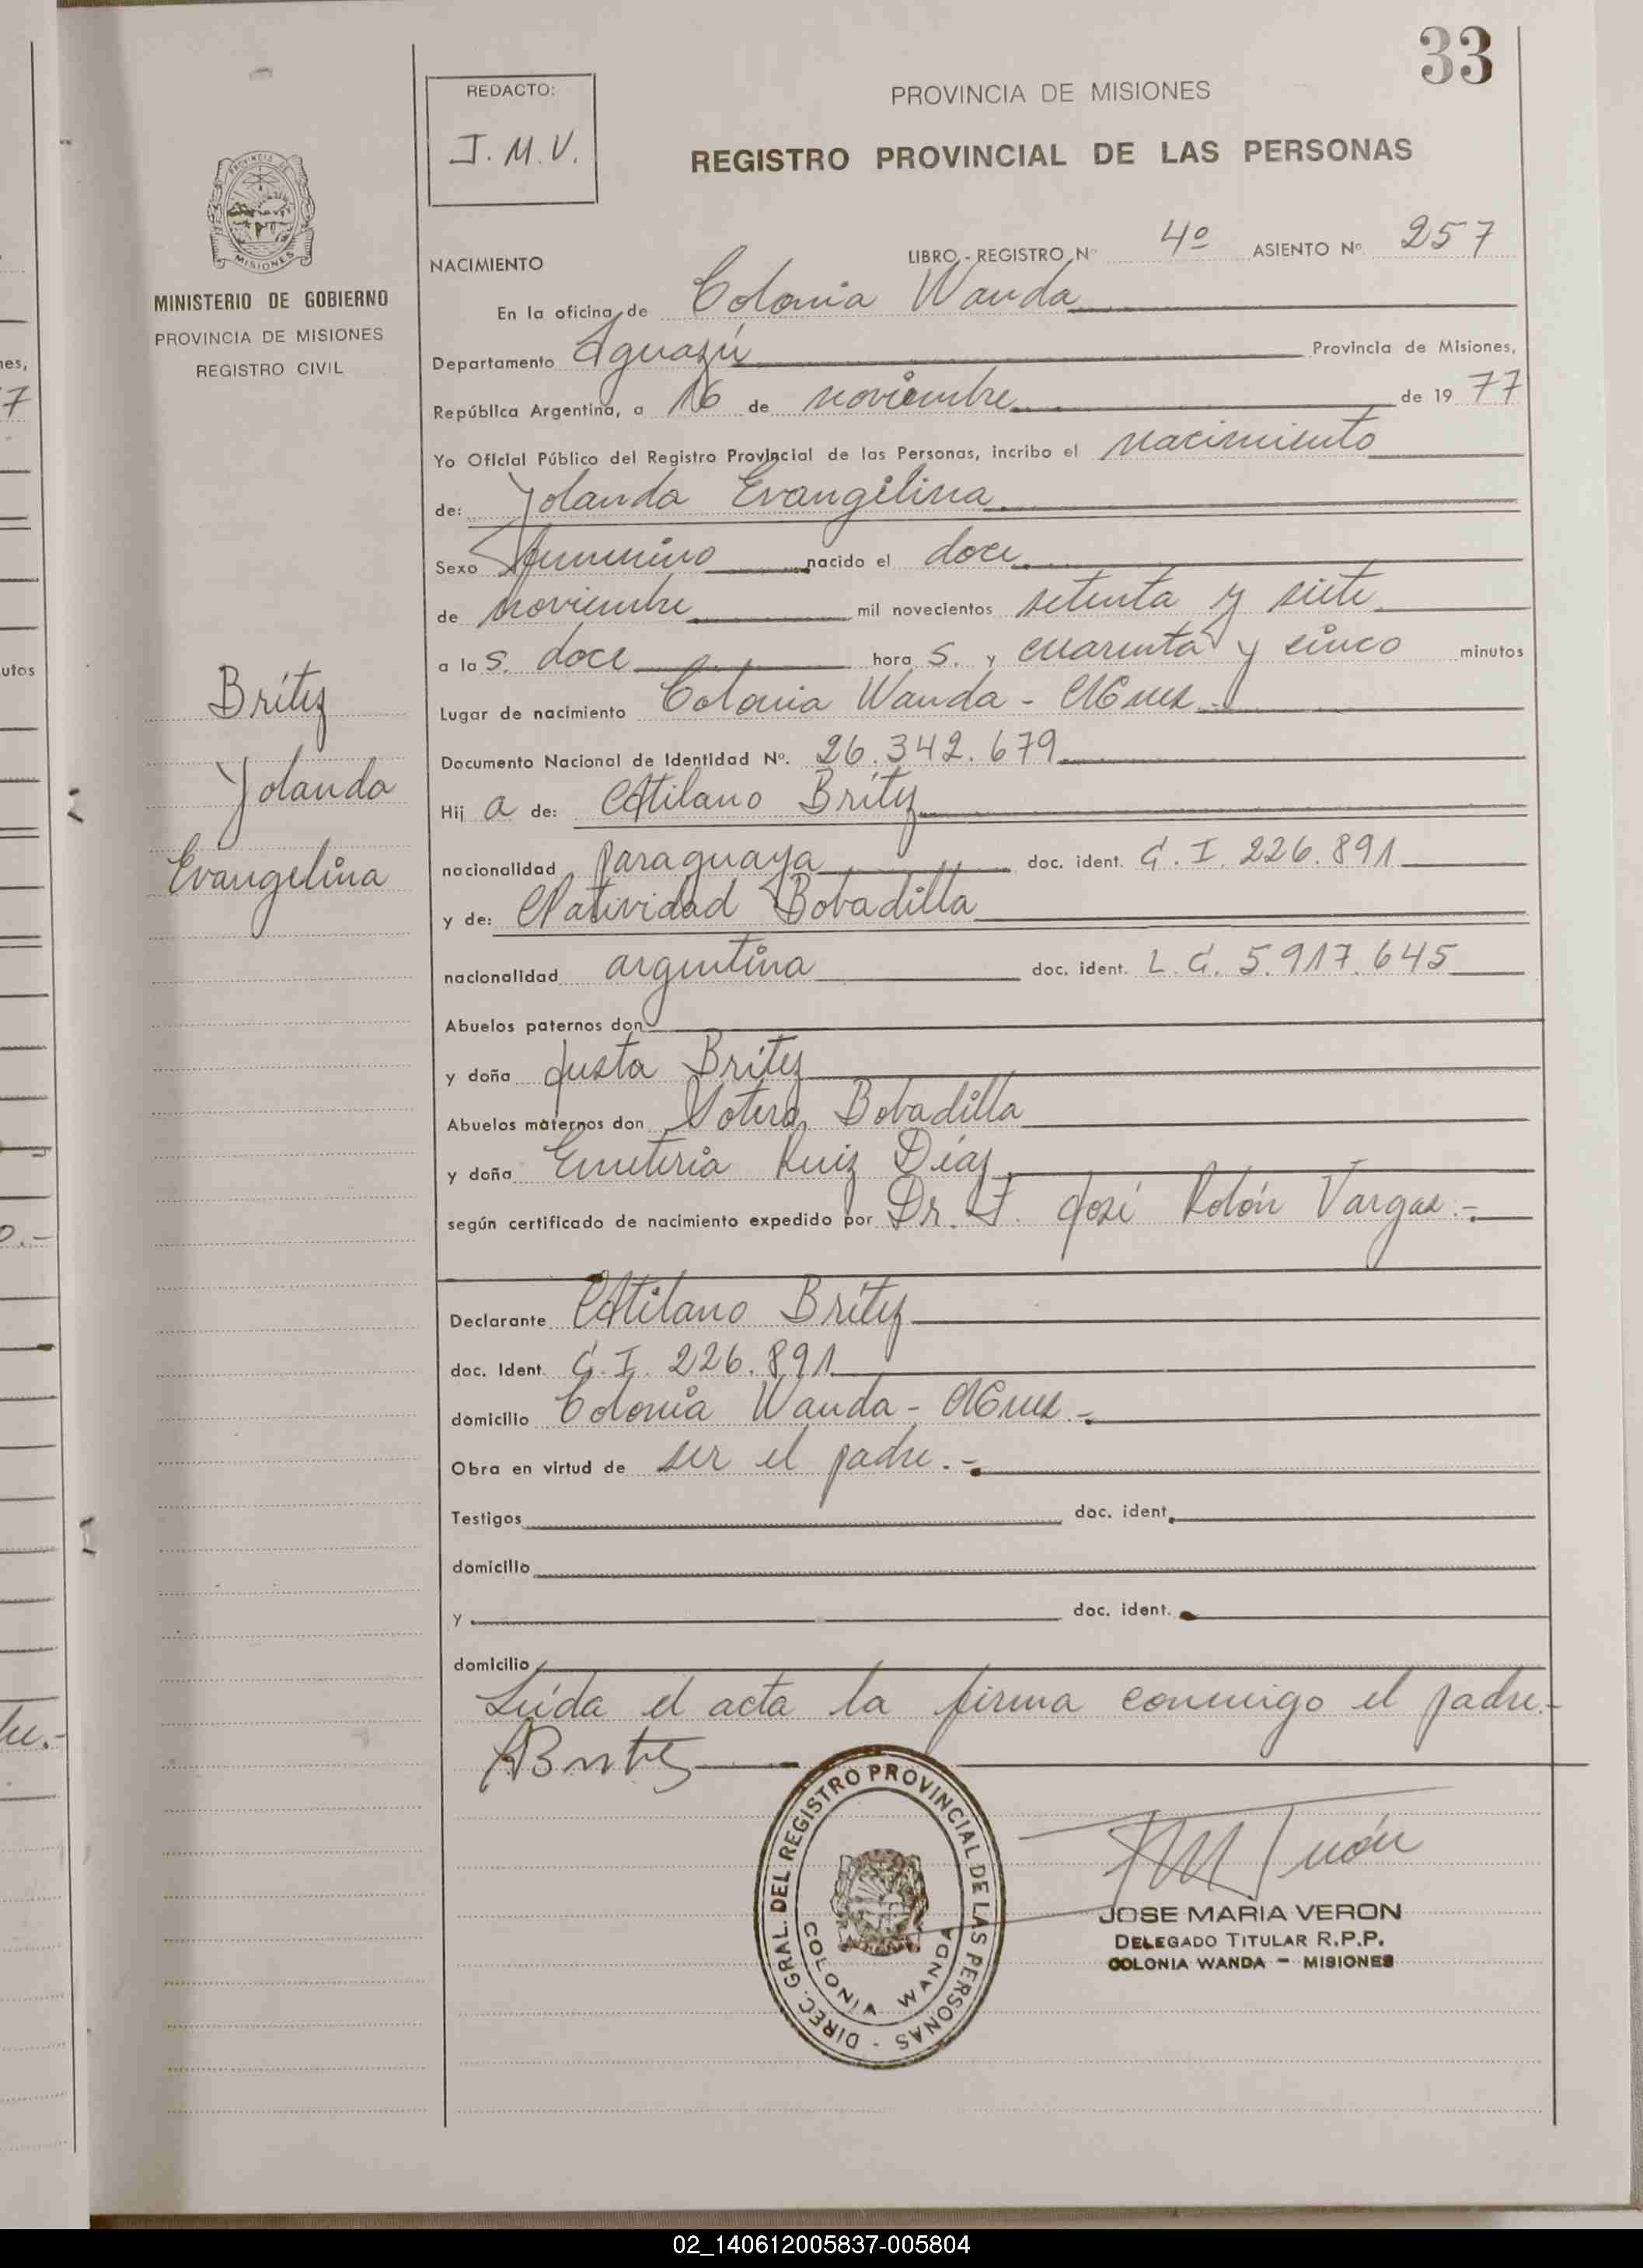 33
REDACTO:
J. M. V.
PROVINCIA DE MISIONES
REGISTRO PROVINCIAL DE LAS PERSONAS
MINISTERIO DE GOBIERNO
PROVINCIA DE MISIONES
REGISTRO CIVIL
Britez
Yolanda
Evangelina
NACIMIENTO LIBRO - REGISTRO Nº 4º ASIENTO Nº 257
En la oficina de Colonia Wanda
Departamento Iguazú Provincia de Misiones,
República Argentina, a 16 de noviembre de 19 77
Yo Oficial Público del Registro Provincial de las Personas, incribo el nacimiento
de: Yolanda Evangelina
Sexo femenino nacido el doce
de noviembre mil novecientos setenta y siete
a la s. doce hora s. y cuarenta y cinco minutos
Lugar de nacimiento Colonia Wanda - Mnes.-
Documento Nacional de Identidad Nº. 26.342.679
Hij a de: Atilano Britez
nacionalidad paraguaya doc. ident. C. I. 226.891
y de: Natividad Bobadilla
nacionalidad argentina doc. ident. L. C. 5.917.645
Abuelos paternos don
y doña Justa Britez
Abuelos maternos don Sotero Bobadilla
y doña Emeteria Ruiz Díaz
según certificado de nacimiento expedido por Dr. F. José Rolón Vargas.-
Declarante Atilano Britez
doc. Ident. C. I. 226.891
domicilio Colonia Wanda - Mnes.-
Obra en virtud de ser el padre.-
Testigos doc. ident.
domicilio
y doc. ident.
domicilio
Leída el acta la firma conmigo el padre.-
ABritez
DIREC. GRAL. DEL REGISTRO PROVINCIAL DE LAS PERSONAS -
COLONIA WANDA
JOSE MARIA VERON
DELEGADO TITULAR R.P.P.
COLONIA WANDA - MISIONES
02_140612005837-005804